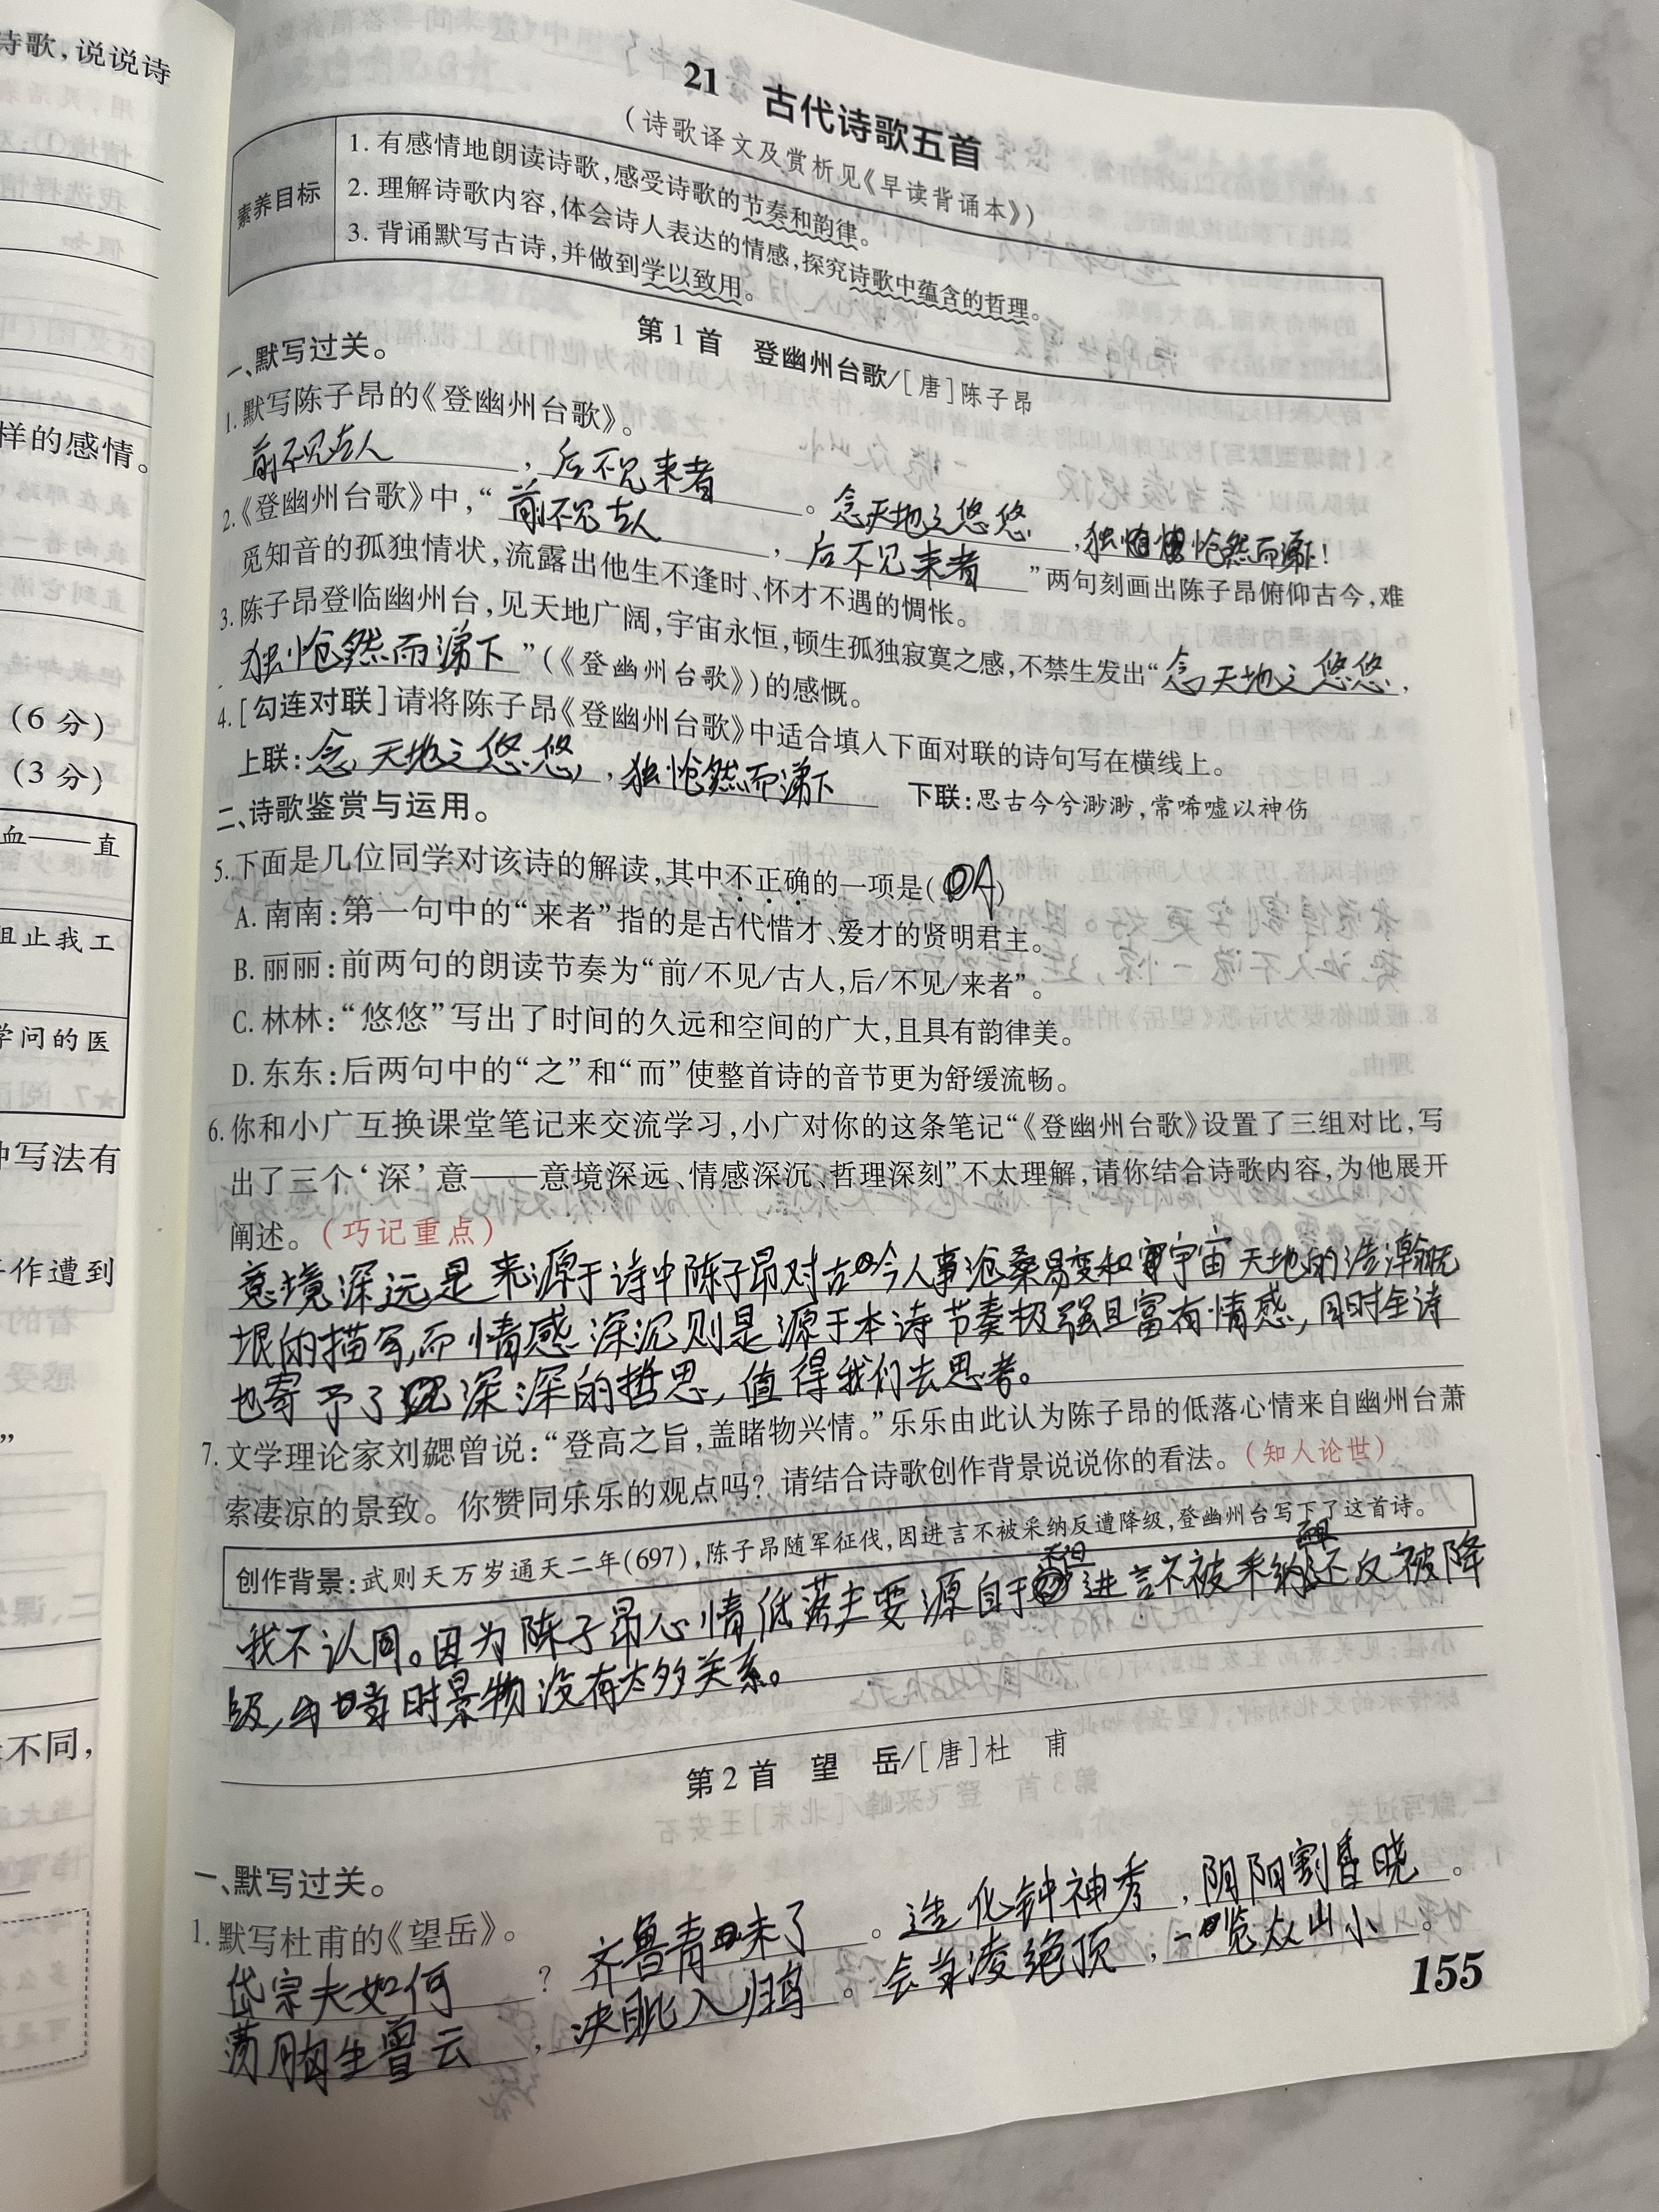 诗歌,说说诗
样的感情。
(6分)
(3分)
血——直
阻止我工
学问的医
中写法有
作遭到
”
不同,
21 古代诗歌五首
(诗歌译文及赏析见《早读背诵本》)
素养目标
1. 有感情地朗读诗歌,感受诗歌的节奏和韵律。
2. 理解诗歌内容,体会诗人表达的情感,探究诗歌中蕴含的哲理。
3. 背诵默写古诗,并做到学以致用。
第1首 登幽州台歌/[唐]陈子昂
一、默写过关。
1. 默写陈子昂的《登幽州台歌》。
前不见古人,后不见来者。念天地之悠悠,独怆然而涕下!
2.《登幽州台歌》中,“前不见古人,后不见来者”两句刻画出陈子昂俯仰古今,难
觅知音的孤独情状,流露出他生不逢时、怀才不遇的惆怅。
3. 陈子昂登临幽州台,见天地广阔,宇宙永恒,顿生孤独寂寞之感,不禁生发出“念天地之悠悠,
独怆然而涕下”(《登幽州台歌》)的感慨。
4. [勾连对联]请将陈子昂《登幽州台歌》中适合填入下面对联的诗句写在横线上。
上联:念天地之悠悠,独怆然而涕下 下联:思古今兮渺渺,常唏嘘以神伤
二、诗歌鉴赏与运用。
5. 下面是几位同学对该诗的解读,其中不正确的一项是(A)
A. 南南:第一句中的“来者”指的是古代惜才、爱才的贤明君主。
B. 丽丽:前两句的朗读节奏为“前/不见/古人,后/不见/来者”。
C. 林林:“悠悠”写出了时间的久远和空间的广大,且具有韵律美。
D. 东东:后两句中的“之”和“而”使整首诗的音节更为舒缓流畅。
6. 你和小广互换课堂笔记来交流学习,小广对你的这条笔记“《登幽州台歌》设置了三组对比,写
出了三个‘深’意——意境深远、情感深沉、哲理深刻”不太理解,请你结合诗歌内容,为他展开
阐述。(巧记重点)
意境深远是来源于诗中陈子昂对古今人事沧桑易变和宇宙天地的浩瀚无
垠的描写,而情感深沉则是源于本诗节奏极强且富有情感,同时全诗
也寄予了深深的哲思,值得我们去思考。
7. 文学理论家刘勰曾说:“登高之旨,盖睹物兴情。”乐乐由此认为陈子昂的低落心情来自幽州台萧
索凄凉的景致。你赞同乐乐的观点吗?请结合诗歌创作背景说说你的看法。(知人论世)
创作背景:武则天万岁通天二年(697),陈子昂随军征伐,因进言不被采纳反遭降级,登幽州台写下了这首诗。
我不认同。因为陈子昂心情低落主要源自于进言不被采纳还反被降
级,与当时景物没有太多关系。
第2首 望 岳/[唐]杜 甫
一、默写过关。
1. 默写杜甫的《望岳》。
岱宗夫如何?齐鲁青未了。造化钟神秀,阴阳割昏晓。
荡胸生曾云,决眦入归鸟。会当凌绝顶,一览众山小。
155